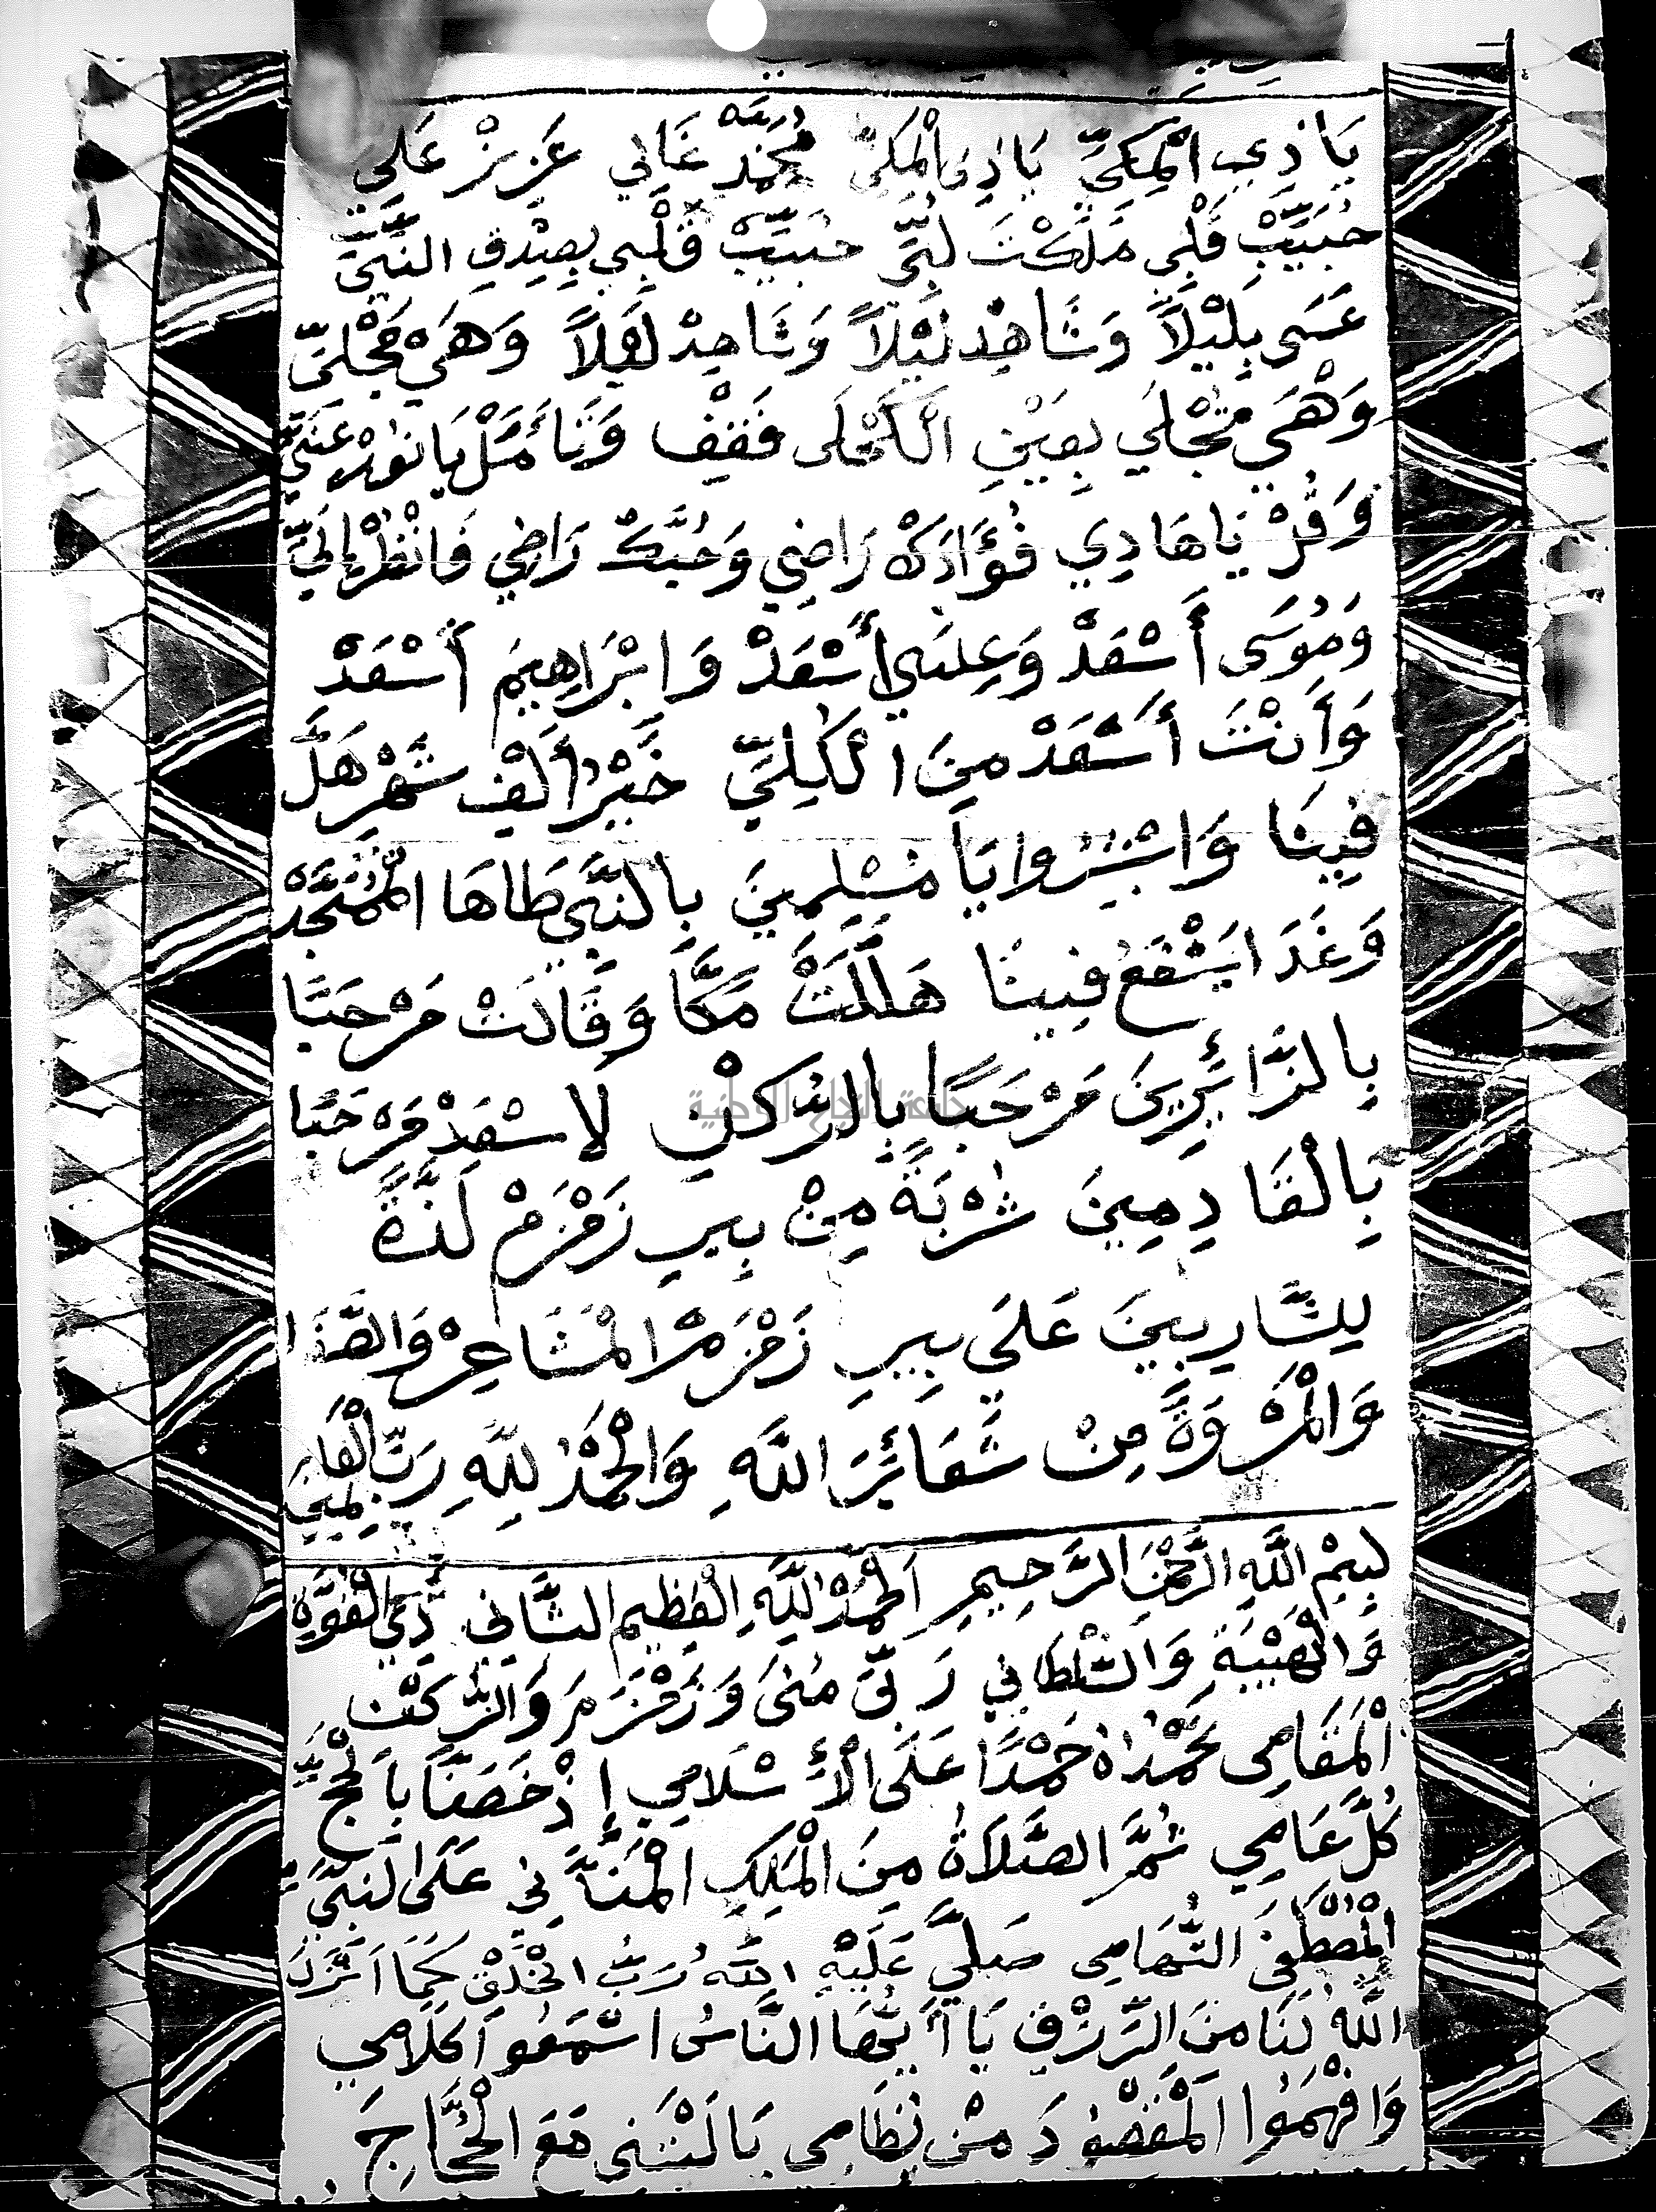 يَا ذِي الْمَكِّيِّ يَا ذِي الْمَكِّيِّ مُحَمَّدْ غَالِي عَزِيزْ عَلَيَّ
حُبَيِّبْ قَلْبِي مَلَكْتَ لُبِّيَ حُبَيِّبْ قَلْبِي بِصِدْقِ النِّيَّتِ
عَسَى بِلَيْلَاً وَشَاهِدْ لَيْلَاً وَشَاهِدْ لَعَلَاً وَهَيْ مَجْلِيَّ
وَهْيَ مَجْلَيَ بِعَيْنِ الْكَحْلَى فَقِفْ وَتَأَمَّلْ يَا نُورْ عَيْنَيَّ
وَقُرْ يَا هَادِي فُؤَادَكْ رَاضِي وَحُبَّكْ رَاضِي فَانْظُرْ إِلَيَّ
وَمُوسَى أَسْعَدْ وَعِيسَى أَسْعَدْ وَابْرَاهِيمَ أَسْعَدْ
وَأَنْتَ أَسْعَدْ مِنَ الْكُلِيِّ خَيْرُ أَلْفِ شَهْرِ هَلَّ
فِينَا وَابْشِرُوا يَا مُسْلِمِينَ بِالنَّبِي طَاهَا الْمُمَجَّدْ
وَغَدَا يَشْفَعُ فِينَا هَلَّلَتْ مَكَّا وَقَالَتْ مَرْحَبًا
بِالزَّائِرِينَ مَرْحَبًا بِالرُّكْنِ لِاسْعَدْ مَرْحَبًا
بِالْقَادِمِينَ شَرْبَةً مِنْ بِيرِ زَمْزَمْ لَذَّةً
لِلشَّارِبِينَ عَلَى بِيرِ زَمْزَمْ الْمَشَاعِرْ وَالصَّفَا
وَالْمَرْوَةَ مِنْ شَعَائِرَ اللَّهِ وَالْحَمْدُ لِلَّهِ رَبِّ الْعَالَمِينَ
بِسْمِ اللَّهِ الرَّحْمَنِ الرَّحِيمِ اَلْحَمْدُ لِلَّهِ الْعَظِيمِ الشَّانِي ذِي الْقُوَّةِ
وَالْهَيْبَةِ وَالسُّلْطَانِي رَبِّ مُنَى وَزَمْزَمَ وَالرُّكْنِ
الْمَقَامِي نَحْمَدُاهُ حَمْدًا عَلَى الْأَسْلَامِي إِذْ خَصَّنَا بِالْحَجِّ
كُلَّ عَامِي ثُمَّ الصَّلَاةُ مِنَ الْمَلِكِ الْمَنَّانِي عَلَى النَّبِيِّ
الْمُصْطَفَى التُّهَامِي صَلَّى عَلَيْهِ اللَّهُ رَبُّ الْخَلْقِ كَمَا اَنْزَلَ
اللَّهُ لَنَا مِنَ الرِّزْقِ يَا أَيُّهَا النَّاسُ اسْمَعُوا كَلَامِي
وَافْهَمُوا الْمَقْصُودَ مِنْ نِظَامِي يَا لَيْتَنِي مَعَ الْحُجَّاجِ
جامعة النجاح الوطنية